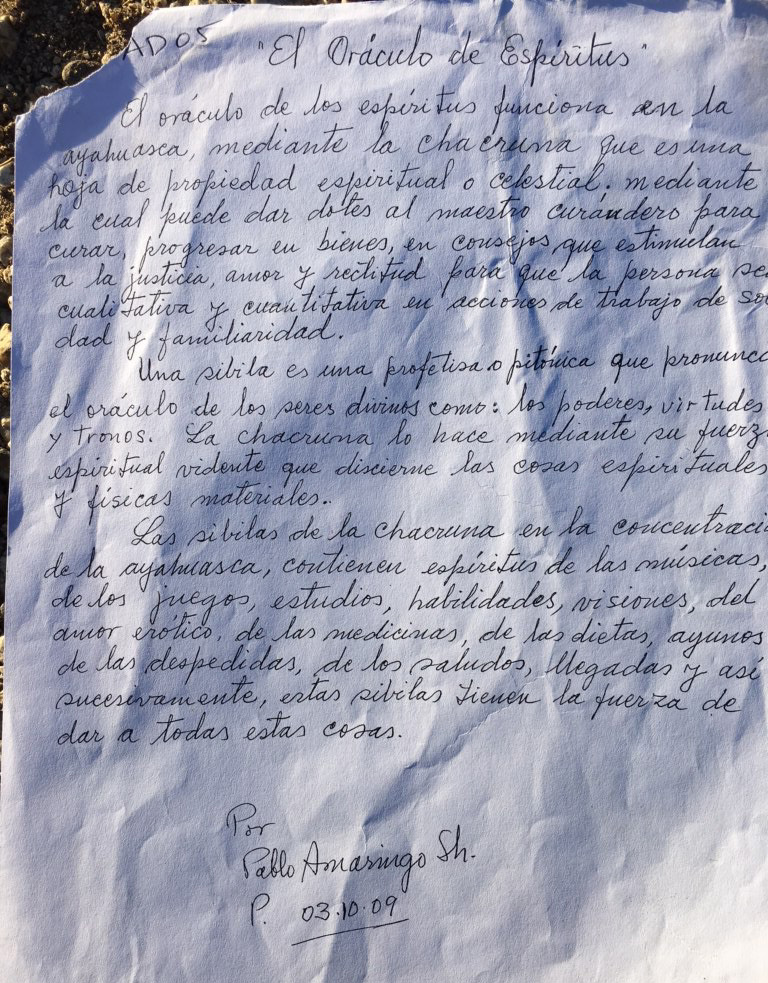 ADOS "El Oráculo de Espíritus"
El oráculo de los espíritus funciona en la
ayahuasca, mediante la chacruna que es una
hoja de propiedad espiritual o celestial. mediante
la cual puede dar dotes al maestro curándero para
curar, progresar en bienes, en consejos que estimulan
a la justicia, amor y rectitud para que la persona se
cualitativa y cuantitativa en acciones de trabajo de so
dad y familiaridad.
Una sibila es una profetisa o pitónica que pronunc
el oráculo de los seres divinos como: los poderes, virtudes
y Tronos. La chacruna lo hace mediante su fuerz
espiritual vidente que discierne las cosas espirituales
y físicas materiales..
Las sibilas de la chacruna en la concentraci
de la ayahuasca, contienen espíritus de las músicas,
de los juegos, estudios, habilidades, visiones, del
amor erótico, de las medicinas, de las dietas, ayunos
de las despedidas, de los saludos, llegadas y así
sucesivamente, estas sibilas tienen la fuerza de
dar a todas estas cosas.
Por
Pablo Amaringo Sh.
P. 03.10.09